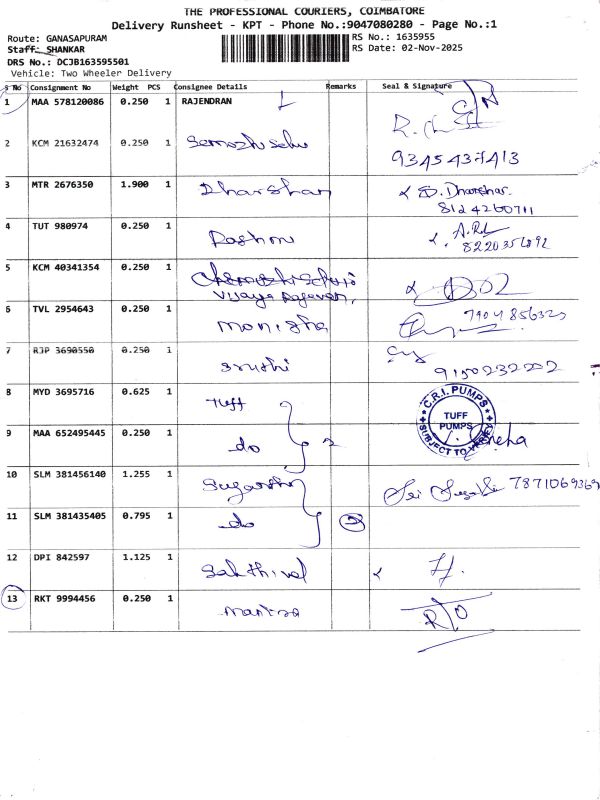 THE PROFESSIONAL COURIERS, COIMBATORE
Delivery Runsheet - KPT - Phone No.:9047080280 - Page No.:1
Route: GANASAPURAM
RS No.: 1635955
Staff: SHANKAR
RS Date: 02-Nov-2025
DRS No.: DCJB163595501
Vehicle: Two Wheeler Delivery
S No Consignment No Weight PCS Consignee Details Remarks Seal & Signature
1 MAA 578120086 0.250 1 RAJENDRAN
2 KCM 21632474 0.250 1
9345437413
3 MTR 2676350 1.900 1 Dharshan D. Dharshan.
4 TUT 980974 0.250 1
5 KCM 40341354 0.250 1
6 TVL 2954643 0.250 1 Monisha
7 RJP 3690550 0.250 1 Srushi
9150232202
8 MYD 3695716 0.625 1 Tuff
C.R.I. PUMPS
TUFF
PUMPS
SUBJECT TO VERIFY
9 MAA 652495445 0.250 1 do 2
Sneha
10 SLM 381456140 1.255 1 7871069369
11 SLM 381435405 0.795 1 do
12 DPI 842597 1.125 1 Sakthivel
13 RKT 9994456 0.250 1